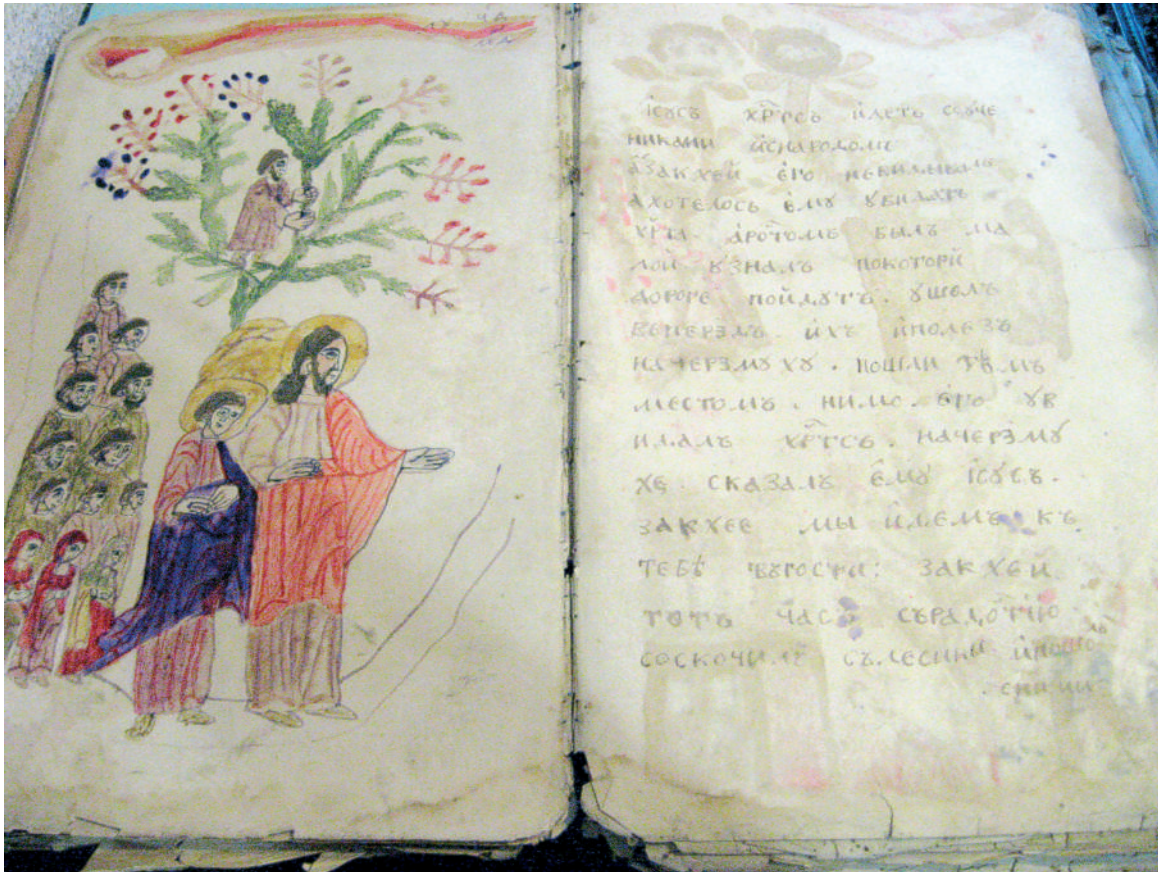 їсусъ хр҃тсъ идетъ соуче
никами иснародомъ
азакхей его невиделъ
ахотелось ему увидатъ
хр҃та. аростомъ былъ ма
лой узналъ покоторй
дороге пойдутъ. ушелъ
вперѣдъ ихъ иполезъ
начерэмуху. пошли тѣмъ
местомъ. нимо. его ув
идалъ хр҃тсъ. начерэму
хе. сказалъ ему їсусъ.
закхее мы идемъ къ
тебѣ вгости: закхей
тотъ часъ съ радостїю
соскочилъ сълесины ипошолъ
сними